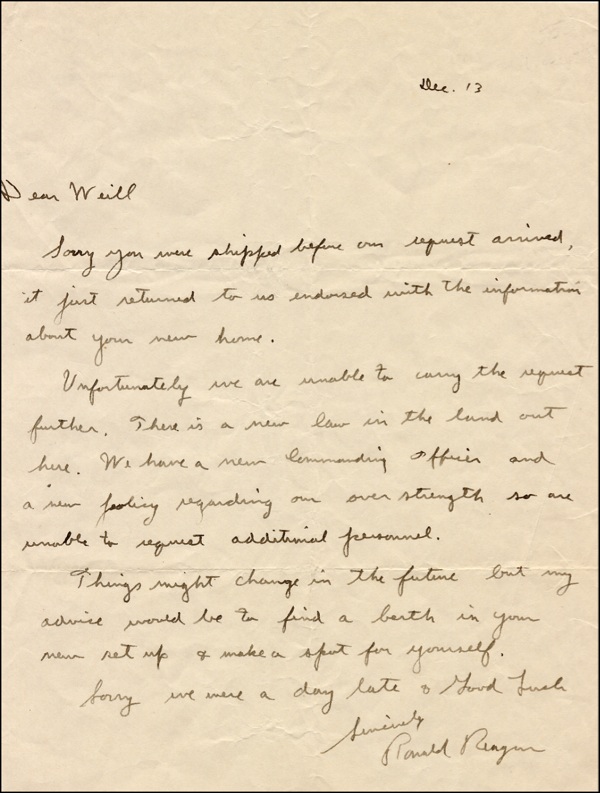 Dec. 13
Dear Weill
Sorry you were shipped before our request arrived,
it just returned to us endorsed with the information
about your new home.
Unfortunately we are unable to carry the request
further. There is a new law in the land out
here. We have a new Commanding Officer and
a new policy regarding our over strength so are
unable to request additional personnel.
Things might change in the future but my
advise would be to find a berth in your
new set up & make a spot for yourself.
Sorry we were a day late & Good Luck
Sincerely
Ronald Reagan